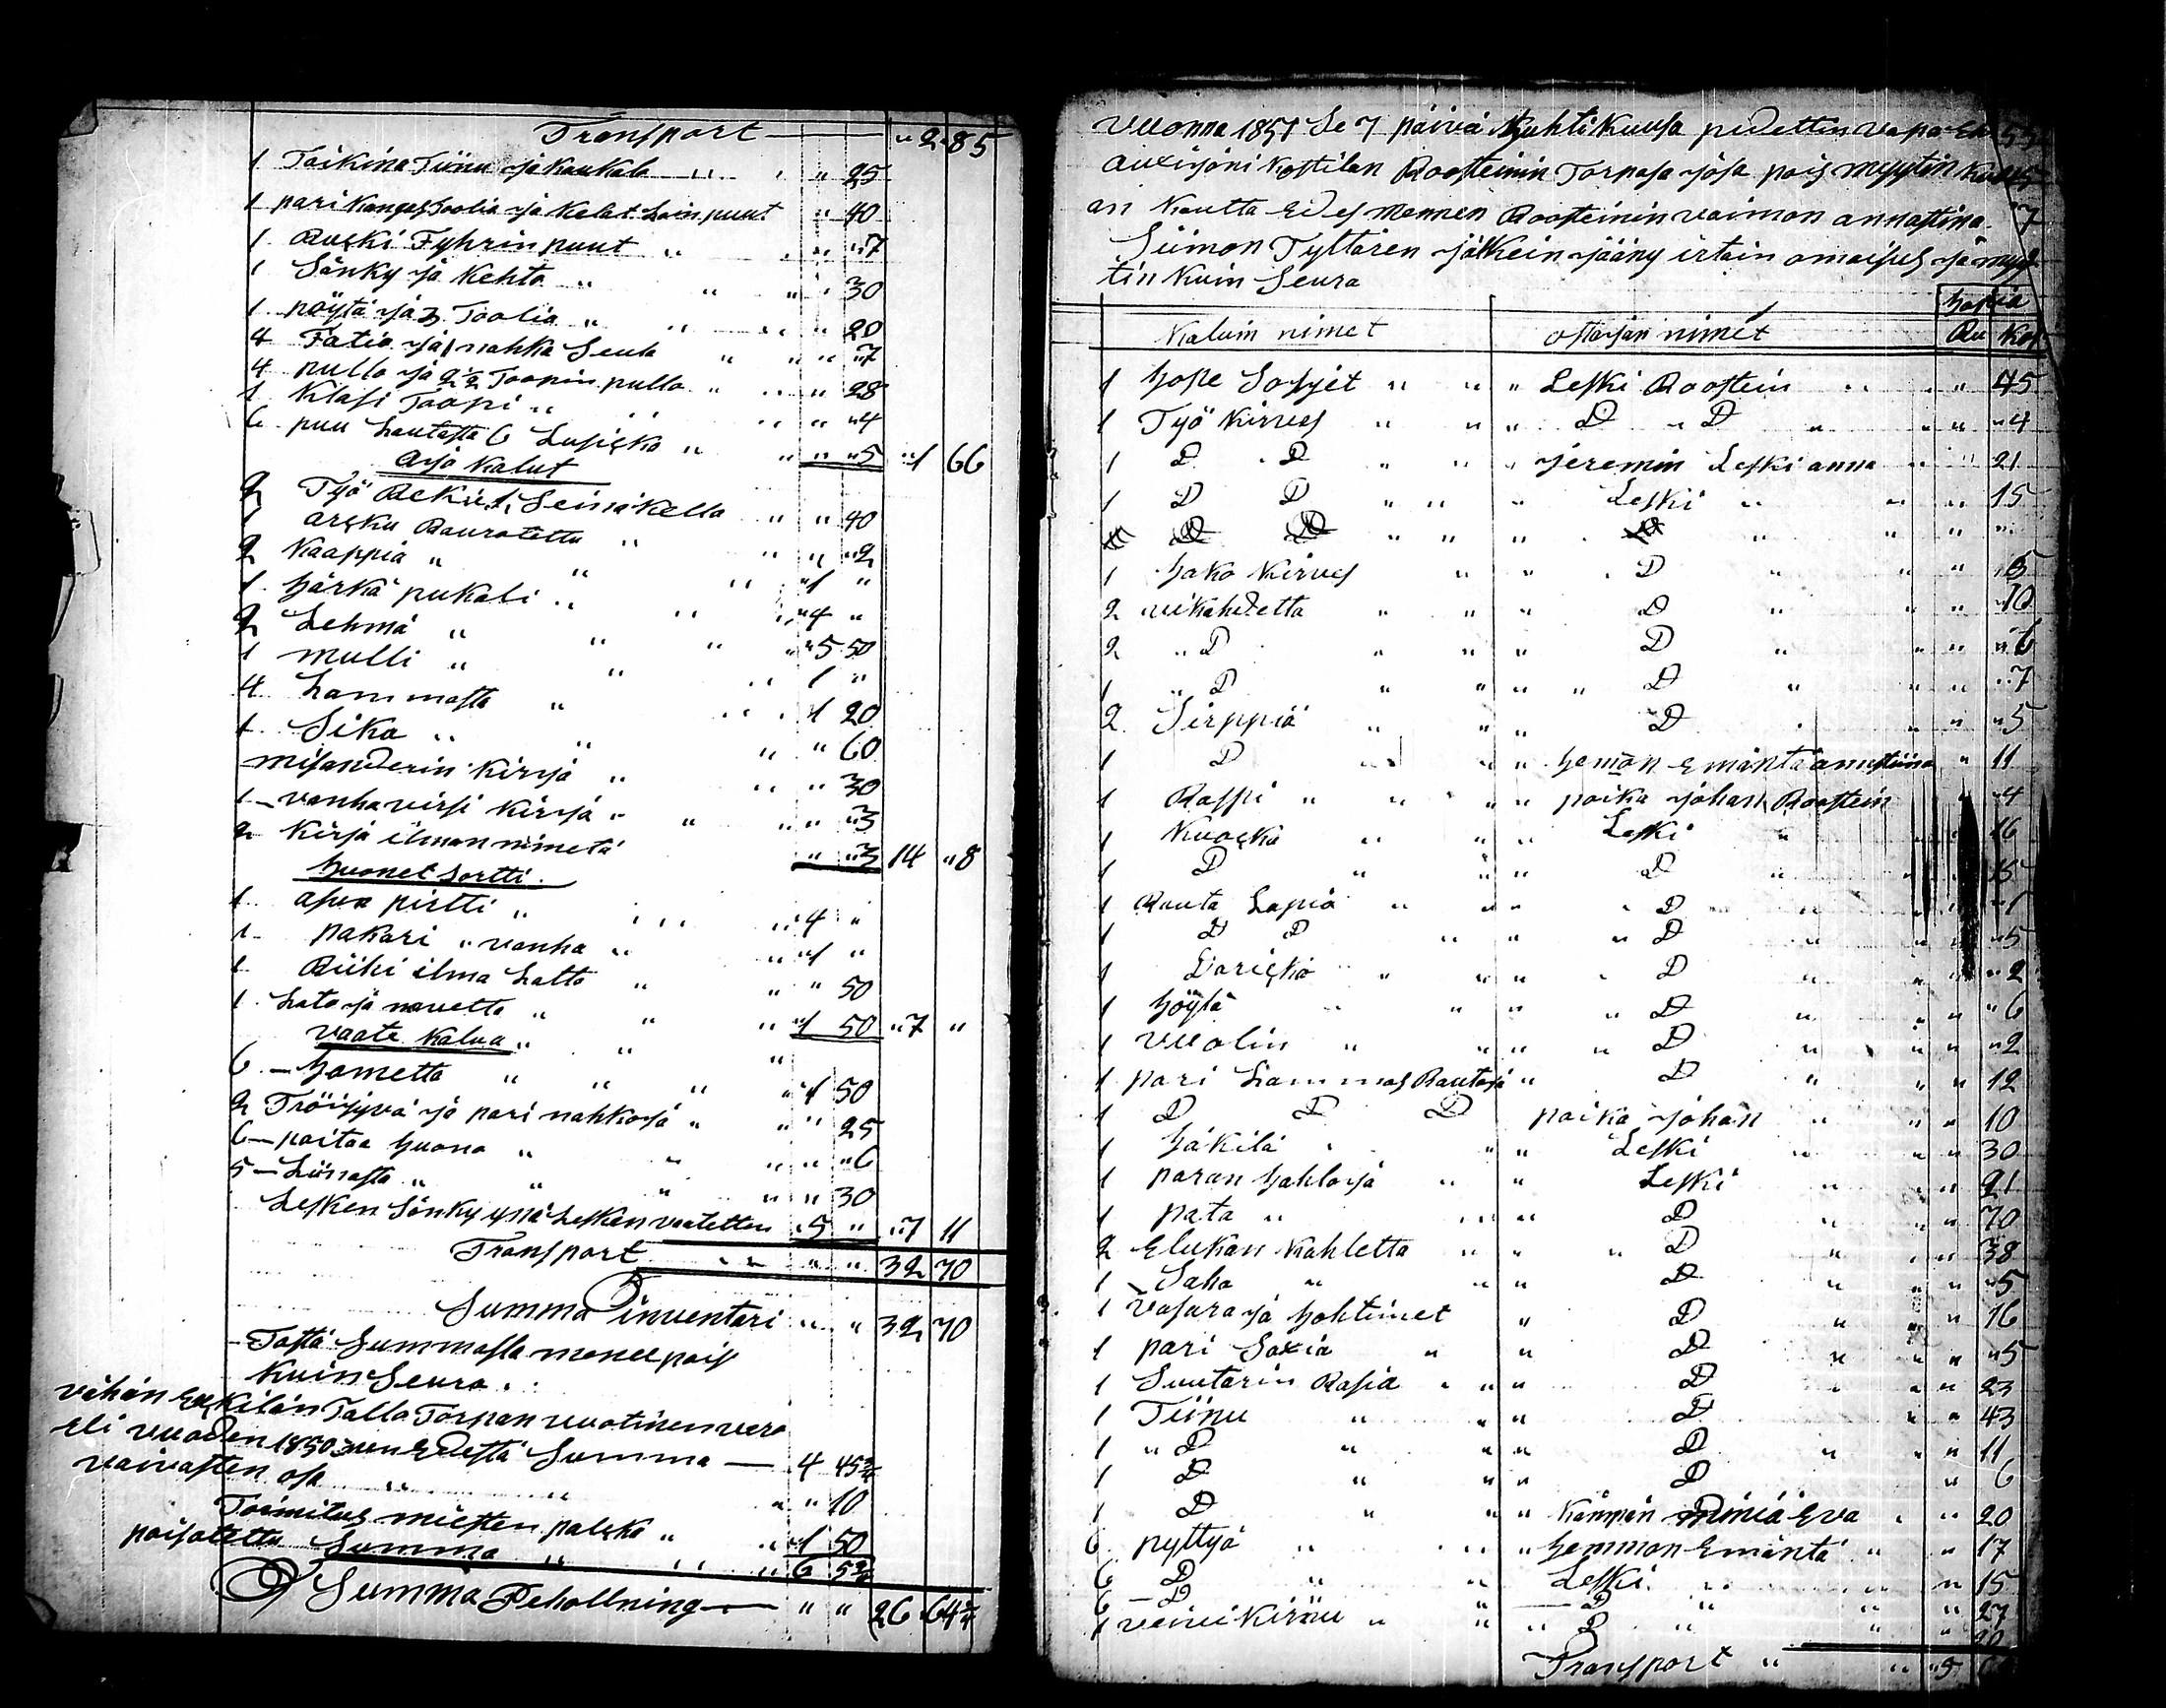 Transport — " 2 " 85
1 Taikina Tiinu ja kaukalo " " 25
1 pari Kangas Toolia ja Kelat Loin puut " 40
1 Ruski Fyhrin puut " " " 7
1 Sänky ja Kehto " " " " 30
1 pöytä ja 3 Toolia " " " " 20
4 Fatia ja 1 nahka Seula " " " " 7
4 pullo ja 2 1/2 Toopin pullo " " " 28
1 Klasi Toopi " " " " 4
6 puu Lautasta 6 Lusicka " " " " 5 " 1 66
Ajo Kalut
2 Työ Rekiä 1 Seinä Kello " " 40
1 arcku Rauratettu " " " " 2
2 Kaappia " " " 1 "
1 härkä pukali " " " 4 "
2 Lehmä " " " " 5 50
1 mulli " " " 1 "
4 Lammasta " " 1 20
1 Sika " " " " 60
Misanderin Kirja " " " 30
1 — vanha virsi Kirja " " " " " 3
2 Kirja ilman nimetä " " 3 14 " 8
huonet Sortti
1 asua pirtti " " " 4 "
1 pakari " vanha " " 1 "
1 Riihi ilma Latto " " " 50
1 Lato ja navetta " " " 1 50 " 7 "
vaate Kalua " " "
6 — hametta " " " " 1 50
2 Tröijyvä ja pari nahkoja " " " 25
6 — paitaa huono " " " " " 6
5 — Liinasta " " " " " 30
Lesken Sänky ynä Lesken vaatetten 5 " " 7 11
Transport " " " " 32 70
Summa inventari " " 32 70
Tästä Summasta menee pois
Kuin Seura
vähän Eckilän Talla Torpan vuotinen vero
eli vuoden 1850 nen Edestä Summa — 4 45 3/4
vaivasten osa " " " " 10
Toimitus miesten palcka " " 1 50
poisotettu Summa " " " 6 5 3/4
Summa Pehollning — " " 26 64 1/4
vuonna 1851 Se 7 päivä huhti Kuusa pidettin vapa Eh
auxijoni Kostilan Roosteinin Torpasa josa pois myytin
an Kautta Edes mennen Roosteinin vaimon annastina
Siimon Tyttären jälkein jääny irtain omaisus ja myy
tin Kuin Seura
hopia
Kaluin nimet ostajan nimet Ru Kop
1 hope Soljet " " " Leski Roostein " " 45
1 Työ Kirves " " " D " D " " " " 4
1 D " D " " " jeremin Leski anna " " 21
1 D D " " " " Leski " " " 15
1 hako Kirves " " " D " " " 5
2 viikahdetta " " " D " " " 10
2 " D " " " D " " " " 6
1 " D " " " " D " " " " 7
2 Sirppiä " " " D " " " 5
1 D " " " hemön Emäntä annastiina " 11
1 Raspi " " " " poika johan Roostein " 4
1 Kuocka " " " Leski " 16
1 D " " " D " " 15
1 Rauta Lapia " " " " D " 1
1 D D " " " D " " " " 5
1 Daricka " " " " D " " " 2
1 höylä " " " D " " " " 6
1 vuolin " " " " D " " " " 2
1 pari Lammas Rautoja " D " " " 12
1 D D D poika johan " " " 10
1 häkilä " " " Leski " " " 30
1 paran hahloja " " Leski " " " 21
1 pata " " " D " " " 70
2 Elukan Kahletta " " " D " " " 38
1 Saha " " " D " " " " 5
1 vasara ja hohtimet " D " " " 16
1 pari Saxia " " D " " " " 5
1 Suutarin Rasia " " " D " " " 23
1 Tiinu " " " D " " 43
1 " D " " " D " " " 11
1 D " " " D " 6
1 D " " " Kämpin miniä Eva " " 20
6 pyttyä " " " hemmon Emäntä " " 17
6 D " " Leski " " 15
6 — D " — D " " 27
1 viini Kirnu " " " D " " " 20
Transport " " " 5